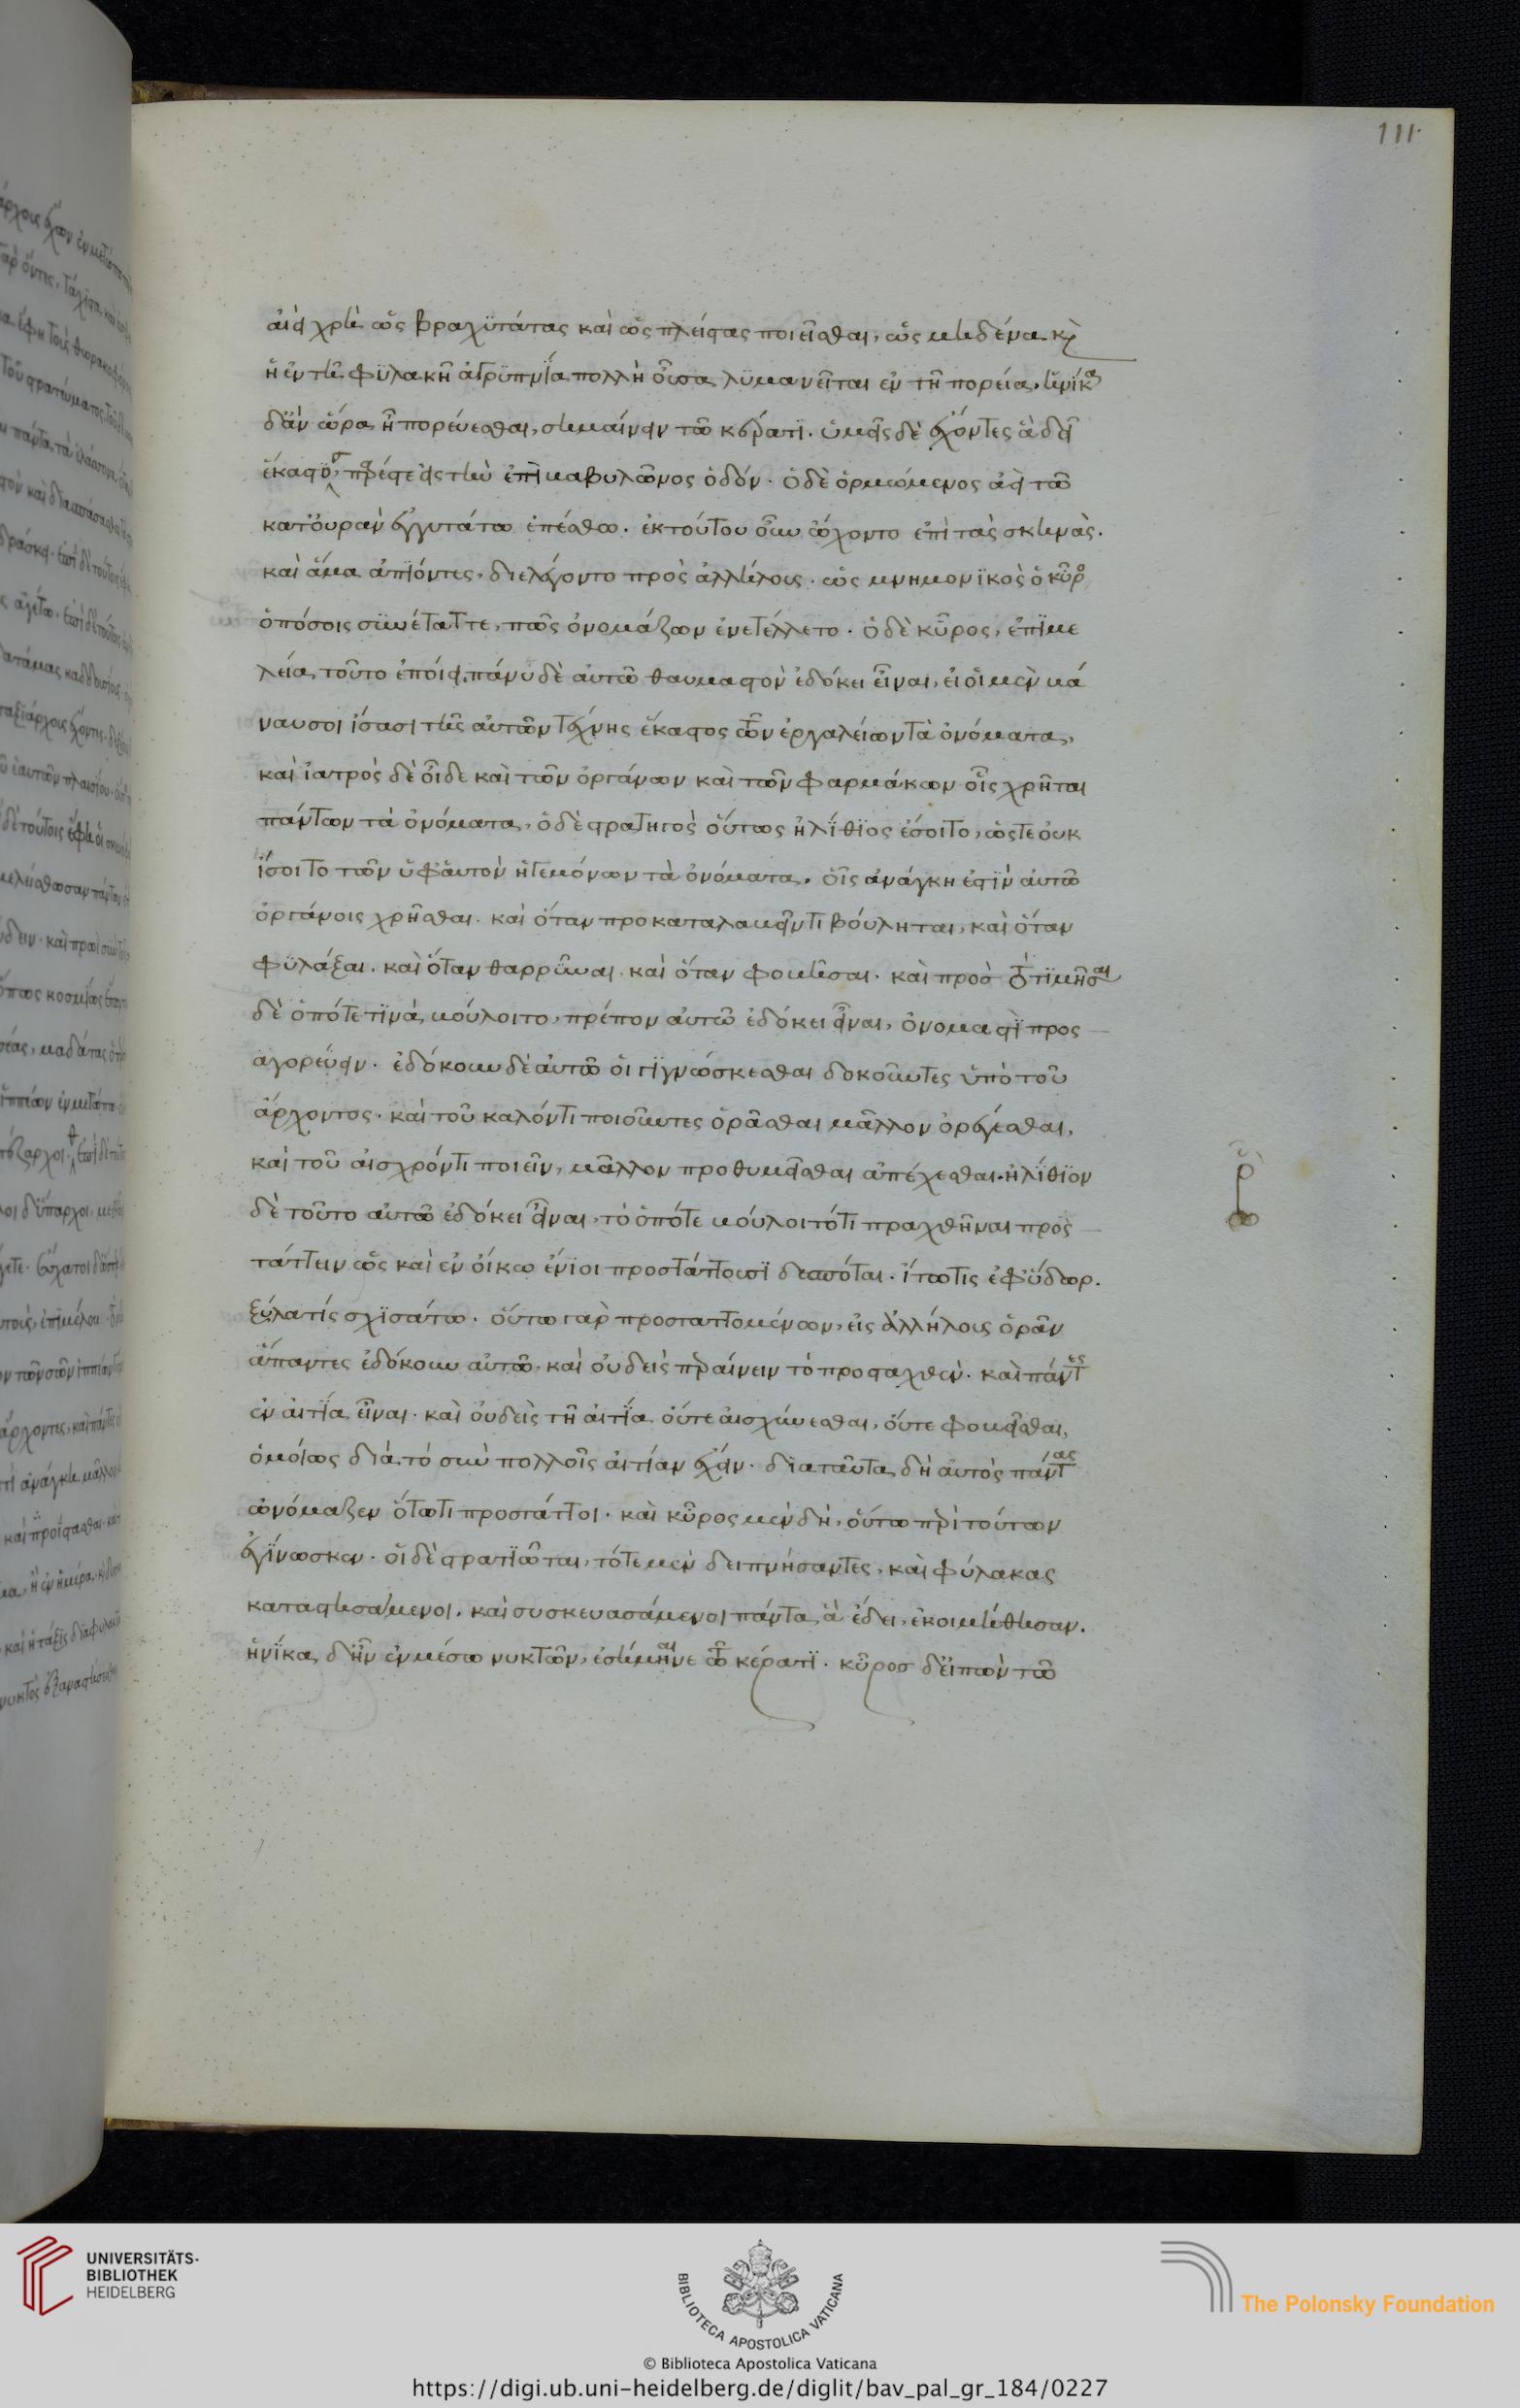 111
ἀεὶ χρὴ ὡς βραχυτάτας καὶ ὡς πλείστας ποιεῖσθαι, ὡς μηδένα κ(αὶ)
ἡ ἐν τῇ φυλακῇ ἀγρυπνία πολλὴ οὖσα λυμανεῖται ἐν τῇ πορεία. ἡνίκα
δ' ἂν ὥρα ᾖ πορεύεσθαι, σημαίνειν τῶ κέρατι. ὑμεῖς δὲ ἔχοντες ἃ δεῖ
ἕκαστος, πρόϊτε εἰς τὴν ἐπὶ βαβυλῶνος ὁδόν. ὁ δὲ ὁρμώμενος ἀεὶ τῶ
κατ' οὐρὰν ἐγγυτάτω ἐπέσθω. ἐκ τούτου οὖν ὤχοντο ἐπὶ τὰς σκηνὰς.
καὶ ἅμα ἀπιόντες, διελέγοντο πρὸς ἀλλήλους. ὡς μνημονικὸς ὁ κῦρο
ὁπόσοις συνέταττε, πῶς ὀνομάζων ἐνετέλλετο. ὁ δὲ κῦρος, ἐπιμε
λεία τοῦτο ἐποίει. πάνυ δὲ αὐτῶ θαυμαστὸν ἐδόκει εἶναι, εἰ οἱ μὲν βά
ναυσοι ἴσασι τῆς αὐτῶν τέχνης ἕκαστος τῶν ἐργαλείων τὰ ὀνόματα,
καὶ ἰατρὸς δὲ οἶδε καὶ τῶν ὀργάνων καὶ τῶν φαρμάκων οἷς χρῆται
πάντων τὰ ὀνόματα, ὁ δὲ στρατηγὸς οὕτως ἠλίθιος ἔσοιτο, ὥστε οὐκ
ἴσοιτο τῶν ὑφ' ἁυτὸν ἡγεμόνων τὰ ὀνόματα. οἷς ἀνάγκη ἐστὶν αὐτῶ
ὀργάνοις χρῆσθαι. καὶ ὅταν προκαταλαβεῖν τι βούληται, καὶ ὅταν
φυλάξαι. καὶ ὅταν θαρρῦναι. καὶ ὅταν φοβῆσαι. καὶ πρὸς τὸ τιμῆσαι
δὲ ὁπότε τινὰ βούλοιτο, πρέπον αὐτῶ ἐδόκει εἶναι, ὀνομαστὶ προς
αγορεύειν. ἐδόκουν δὲ αὐτῶ οἱ γιγνώσκεσθαι δοκοῦντες ὑπὸ τοῦ
ἄρχοντος. καὶ τοῦ καλόν τι ποιοῦντες ὁρᾶσθαι μᾶλλον ὀρέγεσθαι,
καὶ τοῦ αἰσχρόν τι ποιεῖν, μᾶλλον προθυμεῖσθαι ἀπέχεσθαι. ἠλίθιον
δὲ τοῦτο αὐτῶ ἐδόκει εἶναι, τὸ ὁπότε βούλοιτό τι πραχθῆναι προς
τάττειν ὡς καὶ ἐν οἴκω ἔνιοι προστάττουσι δεσπόται. ἴτω τις ἐφ' ὕδωρ.
ξύλα τίς σχισάτω. οὕτω γὰρ προσταττομένων, εἰς ἀλλήλους ὁρᾶν
ἅπαντες ἐδόκουν αὐτῶ. καὶ οὐδεὶς περαίνειν τὸ προσταχθέν. καὶ πάντες
ἐν αἰτία εἶναι. καὶ οὐδεὶς τῇ αἰτία οὔτε αἰσχύνεσθαι, οὔτε φοβεῖσθαι,
ὁμοίως διὰ τὸ σὺν πολλοῖς αἰτίαν ἔχειν. διὰ ταῦτα δὴ αὐτὸς πάντας
ὠνόμαζεν ὅτω τι προστάττοι. καὶ κῦρος μὲν δὴ, οὕτω περὶ τούτων
ἐγίνωσκεν. οἱ δὲ στρατιῶται, τότε μὲν δειπνήσαντες, καὶ φύλακας
καταστησάμενοι, καὶ συσκευασάμενοι πάντα ἃ ἔδει, ἐκοιμήθησαν.
ἡνίκα δ' ἦν ἐν μέσω νυκτῶν, ἐσήμηνε τῶ κέρατι. κῦρος δ' εἰπὼν τῶ
UNIVERSITÄTS-
BIBLIOTHEK
HEIDELBERG
BIBLIOTECA APOSTOLICA VATICANA
The Polonsky Foundation
© Biblioteca Apostolica Vaticana
https://digi.ub.uni-heidelberg.de/diglit/bav_pal_gr_184/0227